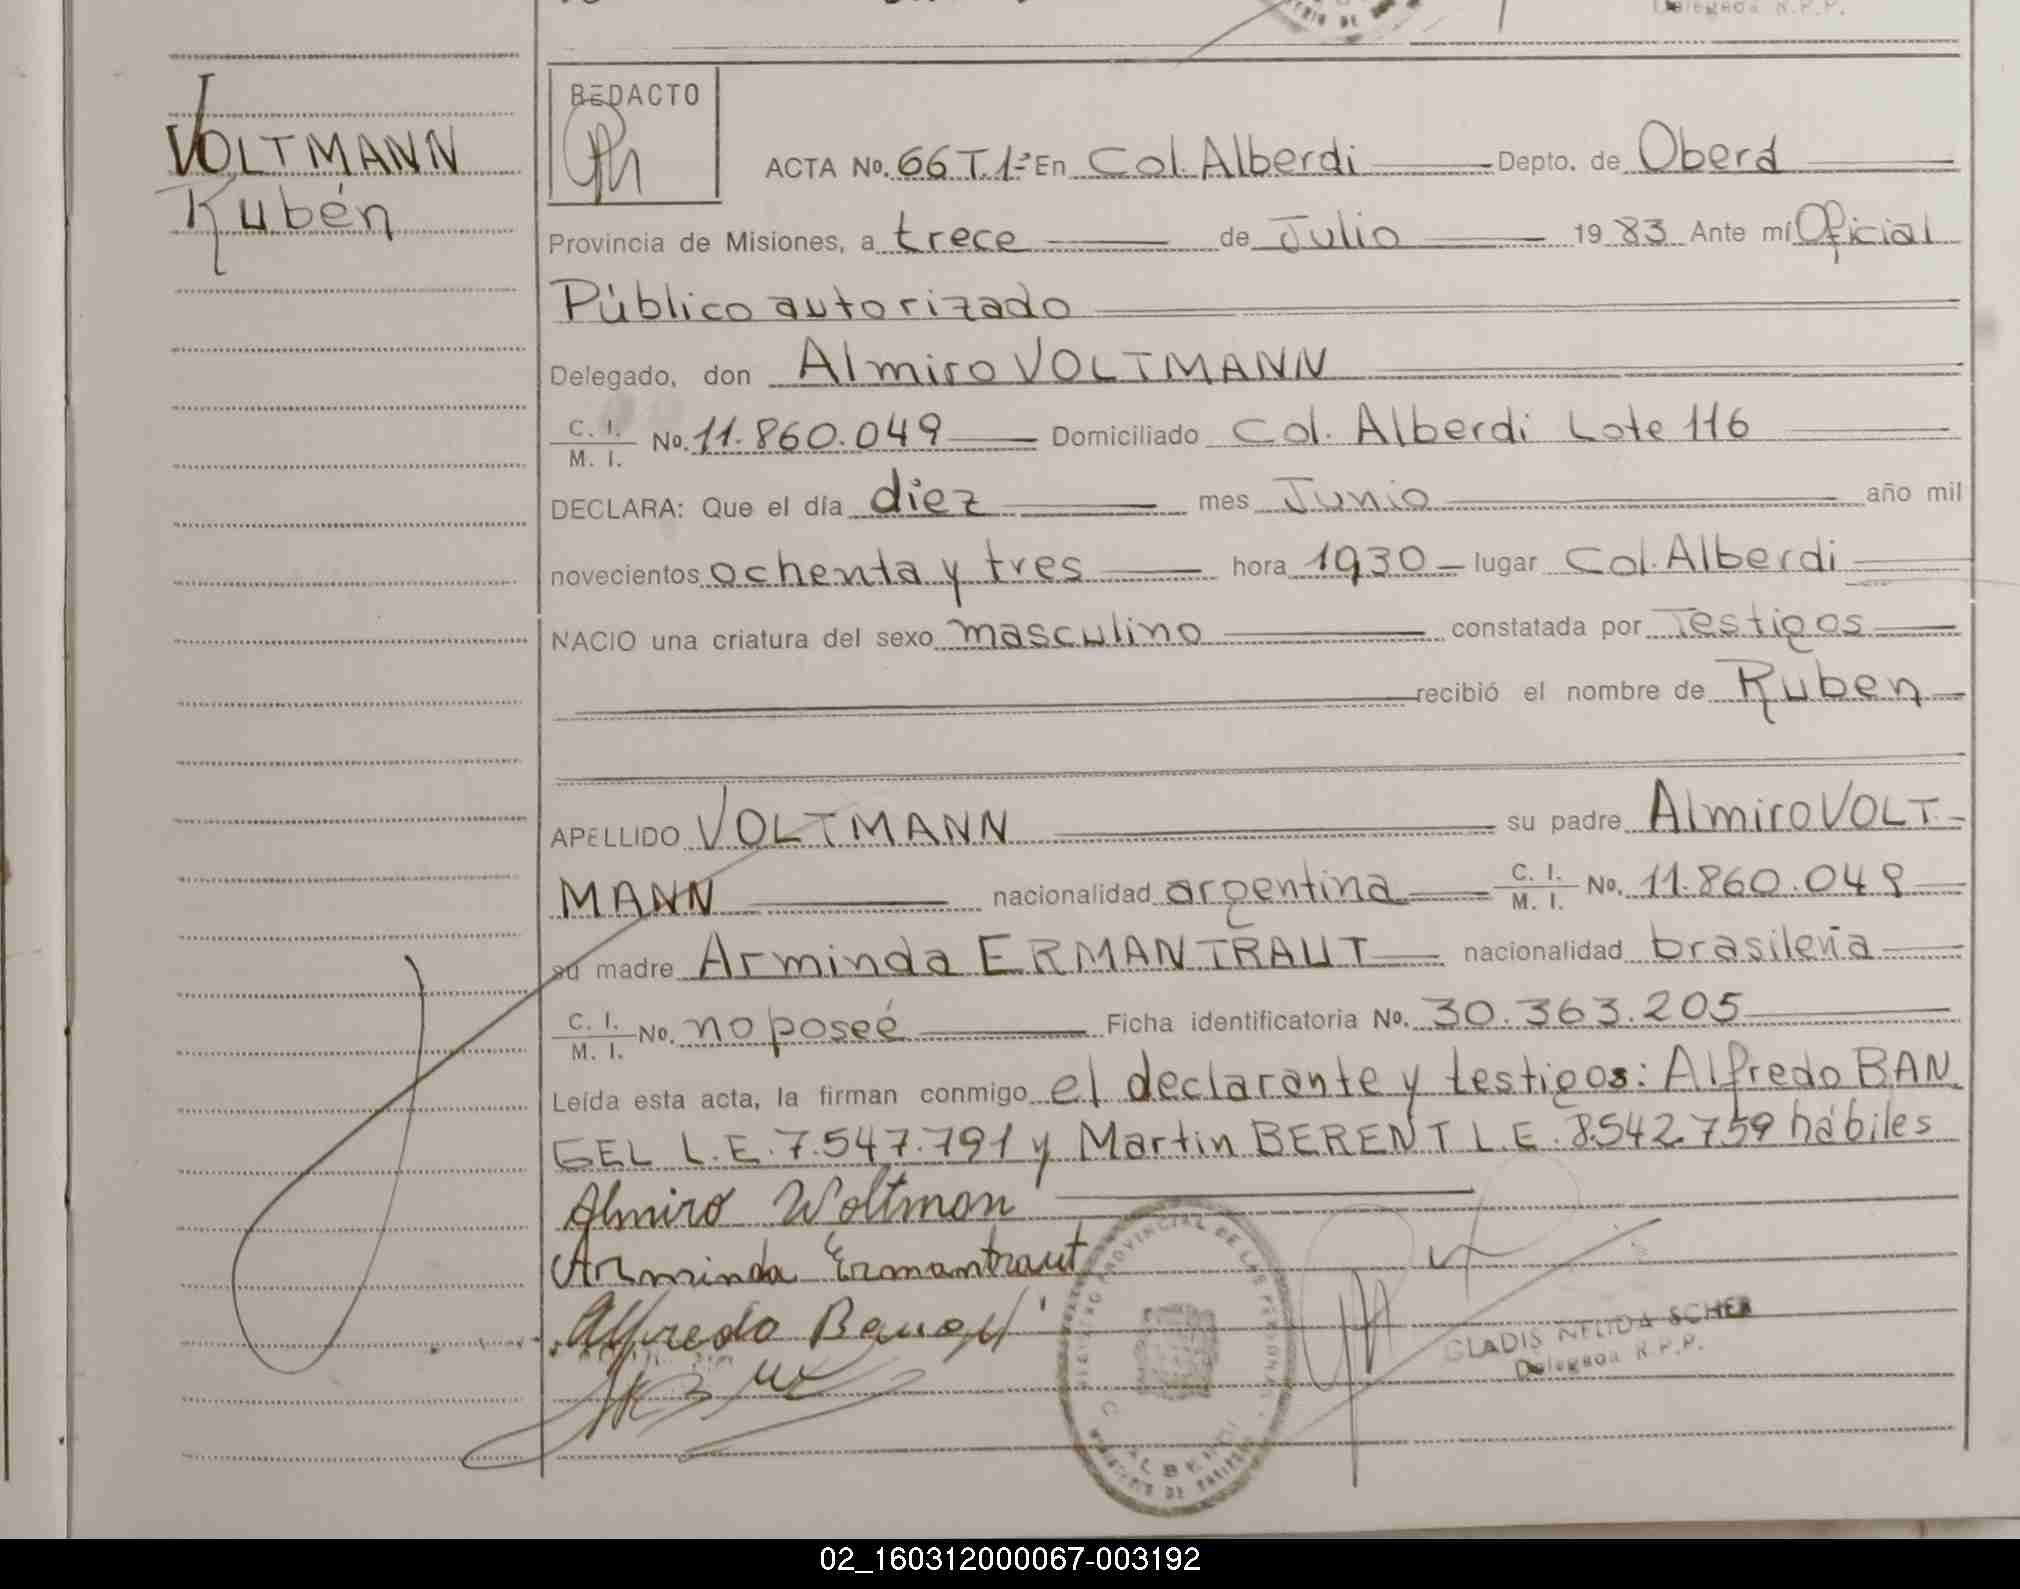 Delegada R.P.P.
VOLTMANN
Rubén
REDACTO
ACTA No. 66 T.1º En Col. Alberdi Depto. de Oberá
Provincia de Misiones, a trece de Julio 19 83 Ante mí Oficial
Público autorizado
Delegado, don Almiro VOLTMANN
C. I. M. I. No. 11.860.049 Domiciliado Col. Alberdi Lote 116
DECLARA: Que el día diez mes Junio año mil
novecientos ochenta y tres hora 1930 lugar Col. Alberdi
NACIO una criatura del sexo masculino constatada por Testigos
recibió el nombre de Ruben
APELLIDO VOLTMANN su padre Almiro VOLT
MANN nacionalidad argentina C. I. M. I. No. 11.860.049
su madre Arminda ERMANTRAUT nacionalidad brasileña
C. I. M. I. No. no poseé Ficha identificatoria No. 30.363.205
Leída esta acta, la firman conmigo el declarante y testigos: Alfredo BAN
GEL L.E. 7.547.791 y Martin BERENT L.E. 8.542.759 hábiles
Almiro Woltman
Arminda Ermantraut
Alfredo
REGISTRO PROVINCIAL DE LAS PERSONAS
ALBERDI
GLADIS NELIDA SCHER
Delegada R.P.P.
02_160312000067-003192